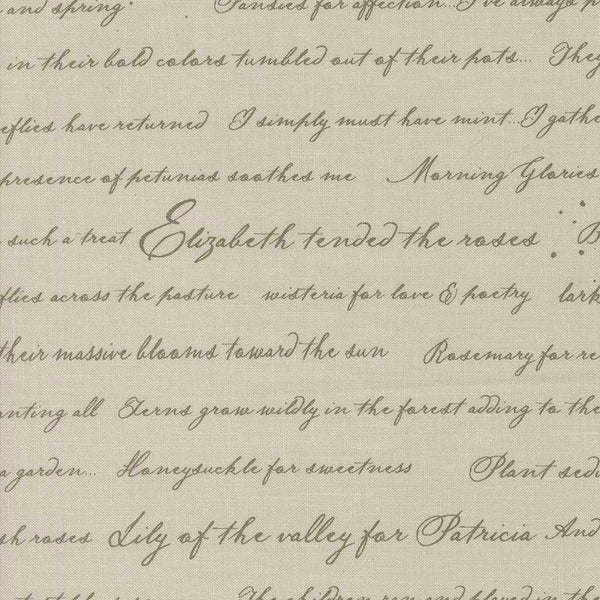 and spring. Pansies for affection... I've always
in their bold colors tumbled out of their pots... They
have returned I simply must have mint... I
presence of petunias soothes me Morning Glories
such a treat Elizabeth tended the roses
across the pasture wisteria for love & poetry
their massive blooms toward the sun Rosemary for
all Ferns grow wildly in the forest adding to the
a garden... Honeysuckle for sweetness Plant
roses Lily of the valley for Patricia And
The children ran and played in the